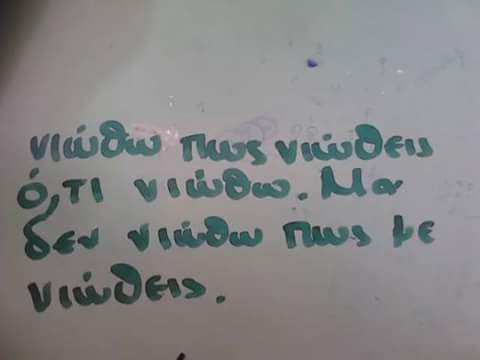 νιώθω πως νιώθεις
ό,τι νιώθω. Μα
δεν νιώθω πως με
νιώθεις.